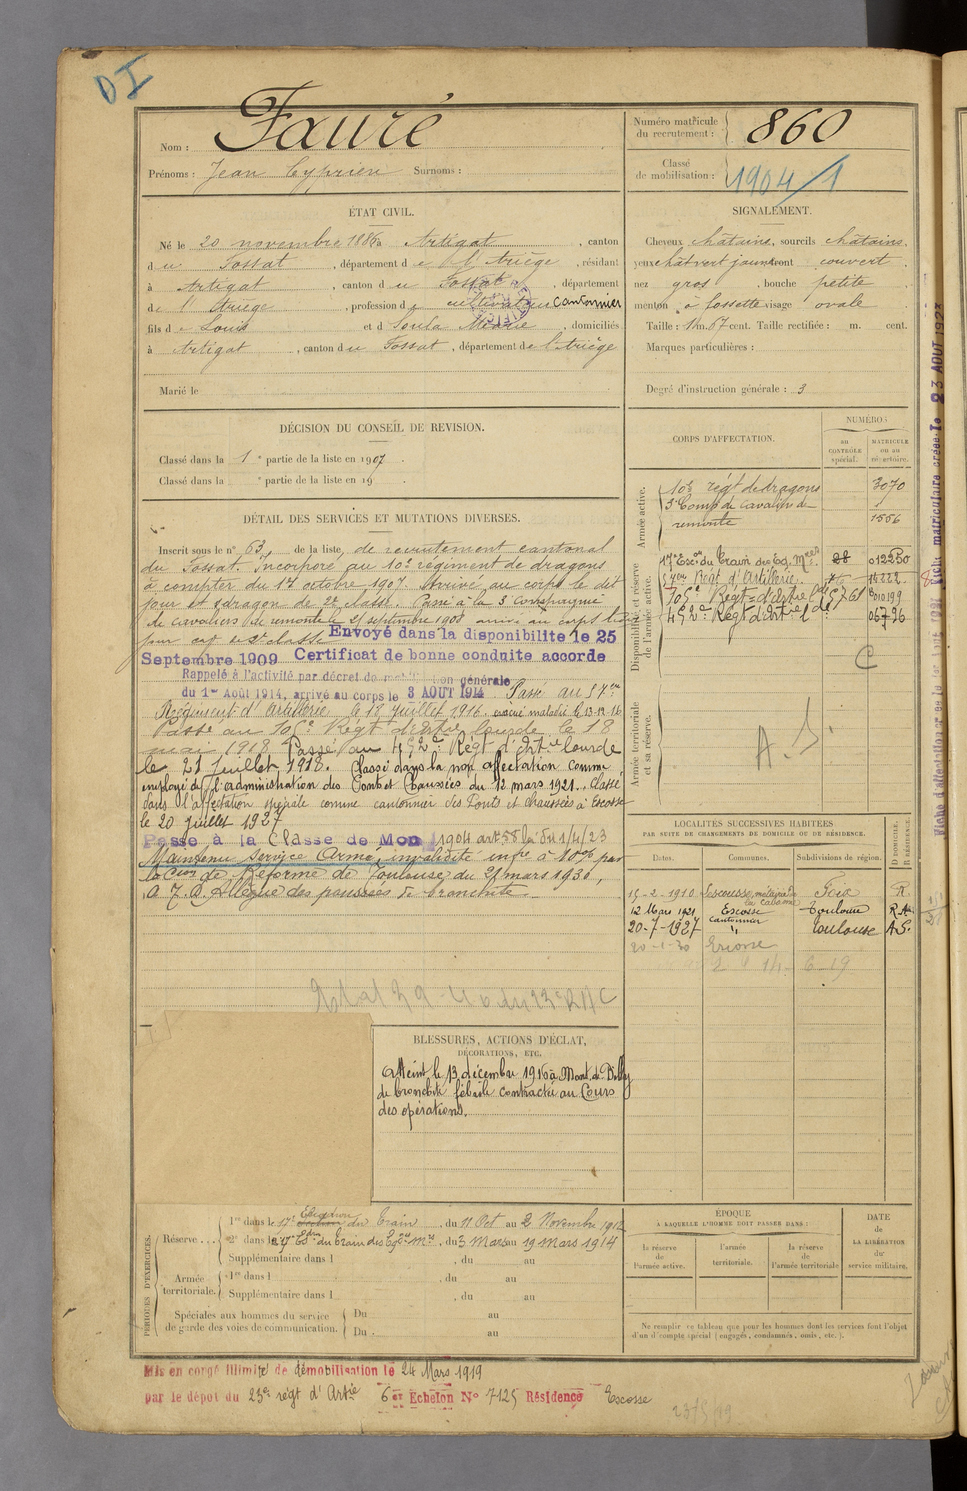 DI
Nom : Fauré
Prénoms : Jean Cyprien Surnoms :
Numéro matricule du recrutement : 860
Classe de mobilisation : 1904/1
ÉTAT CIVIL.
Né le 20 novembre 1886 à Artigat, canton
du Fossat, département de l'Ariège, résidant
à Artigat, canton du Fossat, département
de l'Ariège, profession de cultivateur cantonnier
fils de Louis et de Soula Marie, domiciliés
à Artigat, canton du Fossat, département de l'Ariège
Marié le
SIGNALEMENT.
Cheveux châtains, sourcils châtains,
yeux chât vert jaune front couvert
nez gros, bouche petite
menton à fossette visage ovale
Taille : 1 m. 67 cent. Taille rectifiée : m. cent.
Marques particulières :
Degré d'instruction générale : 3
DÉCISION DU CONSEIL DE REVISION.
Classé dans la 1e partie de la liste en 1907.
Classé dans la e partie de la liste en 19 .
DÉTAIL DES SERVICES ET MUTATIONS DIVERSES.
Inscrit sous le n° 63 de la liste de recrutement cantonal
du Fossat. Incorporé au 10e régiment de dragons
à compter du 17 octobre 1907. Arrivé au corps le dit
jour et dragon de 2e classe. Passé à la 3 compagnie
de cavaliers de remonte le 25 septembre 1908 arrivé au corps le dit
jour cav de 2e classe Envoyé dans la disponibilite le 25
Septembre 1909 Certificat de bonne conduite accorde
Rappelé à l'activité par décret de mobilisation générale
du 1er Août 1914, arrivé au corps le 3 AOUT 1914 Passé au 57me
Régiment d'Artillerie le 18 juillet 1916. évacué malade le 13-12-16
Passé au 105e Régt d'Artie lourde le 18
mai 1918 Passé au 452e Régt d'Artie lourde
le 21 Juillet 1918. Classé dans la non affectation comme
employé de l'administration des Ponts et Chaussées du 12 mars 1921. Classé
dans l'affectation spéciale comme cantonnier des Ponts et chaussées à Escosse
le 20 juillet 1927
Passe à la Classe de Mob 1904 art 58 loi du 1/4/23
Maintenu service Armé, invalidité infre à 10% par
la Cion de Réforme de Toulouse du 21 mars 1930,
Allègue des poussées de bronchite
CORPS D'AFFECTATION.
NUMÉROS
AU CONTRÔLE spécial.
MATRICULE ou au répertoire.
Armée active.
10e régt de dragons 3070
3e Comp de cavaliers de
remonte 1556
Disponibilité et réserve de l'armée active.
17e Escon du Train des Eq. Mres 28 012250
57me Régt d'Artillerie. 14222
105e Régt d'Artie Lde 5761
452e Régt d'Artie Lde 06796
C
Armée territoriale et sa réserve.
A. S.
LOCALITÉS SUCCESSIVES HABITÉES
PAR SUITE DE CHANGEMENTS DE DOMICILE OU DE RÉSIDENCE.
Dates. Communes. Subdivisions de région. D DOMICILE. R RÉSIDENCE.
15-2-1910 Lescousse, métairie de la Cabanne Foix R
12 Mars 1921 Escosse Toulouse R.A.
cantonnier
20-7-1927 " Toulouse A.S.
20-1-30
BLESSURES, ACTIONS D'ÉCLAT,
DÉCORATIONS, ETC.
Atteint le 13 décembre 1916 à Mont de Billy
de bronchite fébrile contractée au Cours
des opérations.
PÉRIODES D'EXERCICES.
Réserve... 1re dans le 17e Escadron du Train, du 11 Oct au 2 Novembre 1912
2e dans le 17e Eson du Train des Eqges Mres, du 3 Mars au 19 Mars 1914
Supplémentaire dans l , du au
Armée territoriale. 1re dans l , du au
Supplémentaire dans l , du au
Spéciales aux hommes du service de garde des voies de communication. Du au
Du au
ÉPOQUE
À LAQUELLE L'HOMME DOIT PASSER DANS :
la réserve de l'armée active.
l'armée territoriale.
la réserve de l'armée territoriale
DATE DE LA LIBÉRATION du service militaire.
Ne remplir ce tableau que pour les hommes dont les services font l'objet
d'un décompte spécial (engagés, condamnés, omis, etc.).
Mis en congé illimité de démobilisation le 24 Mars 1919
par le dépôt du 23e régt d'Artie 6e Echelon N° 7125 Résidence Escosse